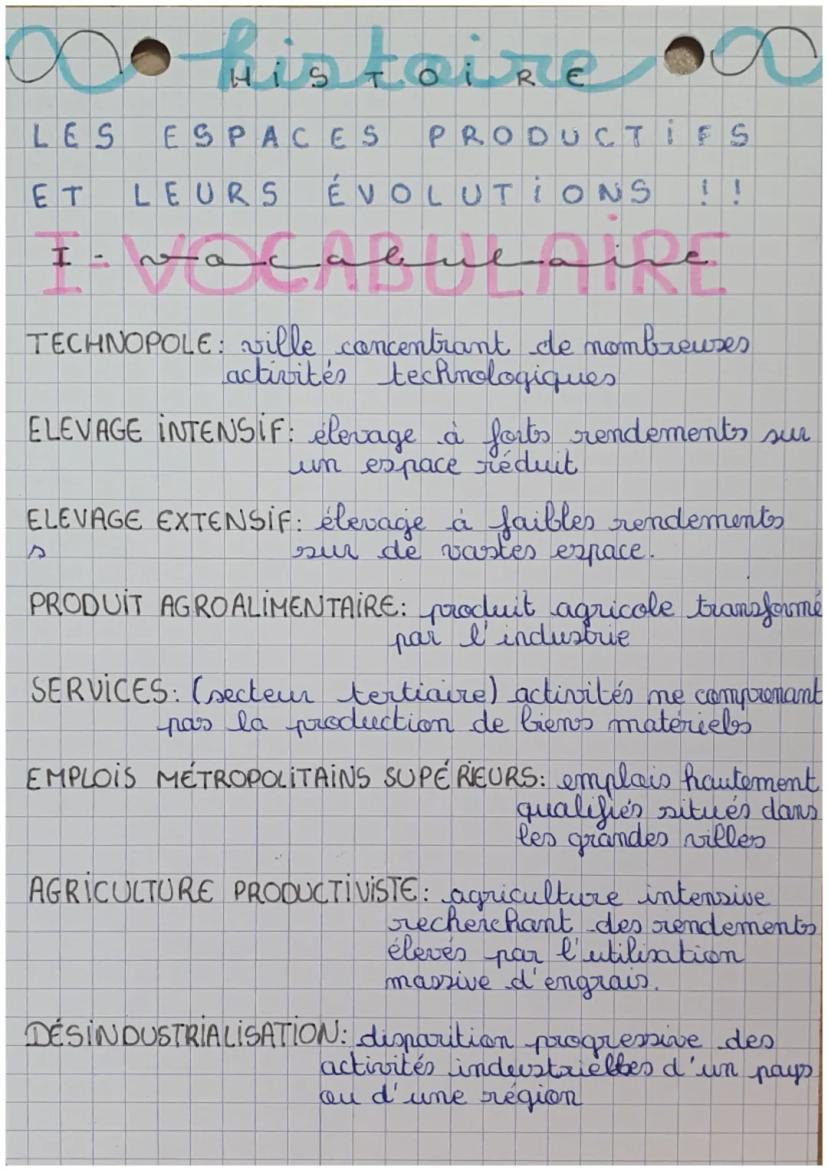 histoire
HISTOIRE
LES ESPACES PRODUCTIFS
ET LEURS ÉVOLUTIONS !!
I-VOCABULAIRE
I - vocabulaire
TECHNOPOLE: ville concentrant de nombreuses
activités technologiques
ELEVAGE INTENSIF: élevage à forts rendements sur
un espace réduit
ELEVAGE EXTENSIF: élevage à faibles rendements
s sur de vastes espace.
PRODUIT AGROALIMENTAIRE: produit agricole transformé
par l'industrie
SERVICES: (secteur tertiaire) activités ne comprenant
pas la production de biens matériels
EMPLOIS MÉTROPOLITAINS SUPÉRIEURS: emplois hautement
qualifiés situés dans
les grandes villes
AGRICULTURE PRODUCTIVISTE: agriculture intensive
recherchant des rendements
élevés par l'utilisation
massive d'engrais.
DÉSINDUSTRIALISATION: disparition progressive des
activités industrielles d'un pays
ou d'une région